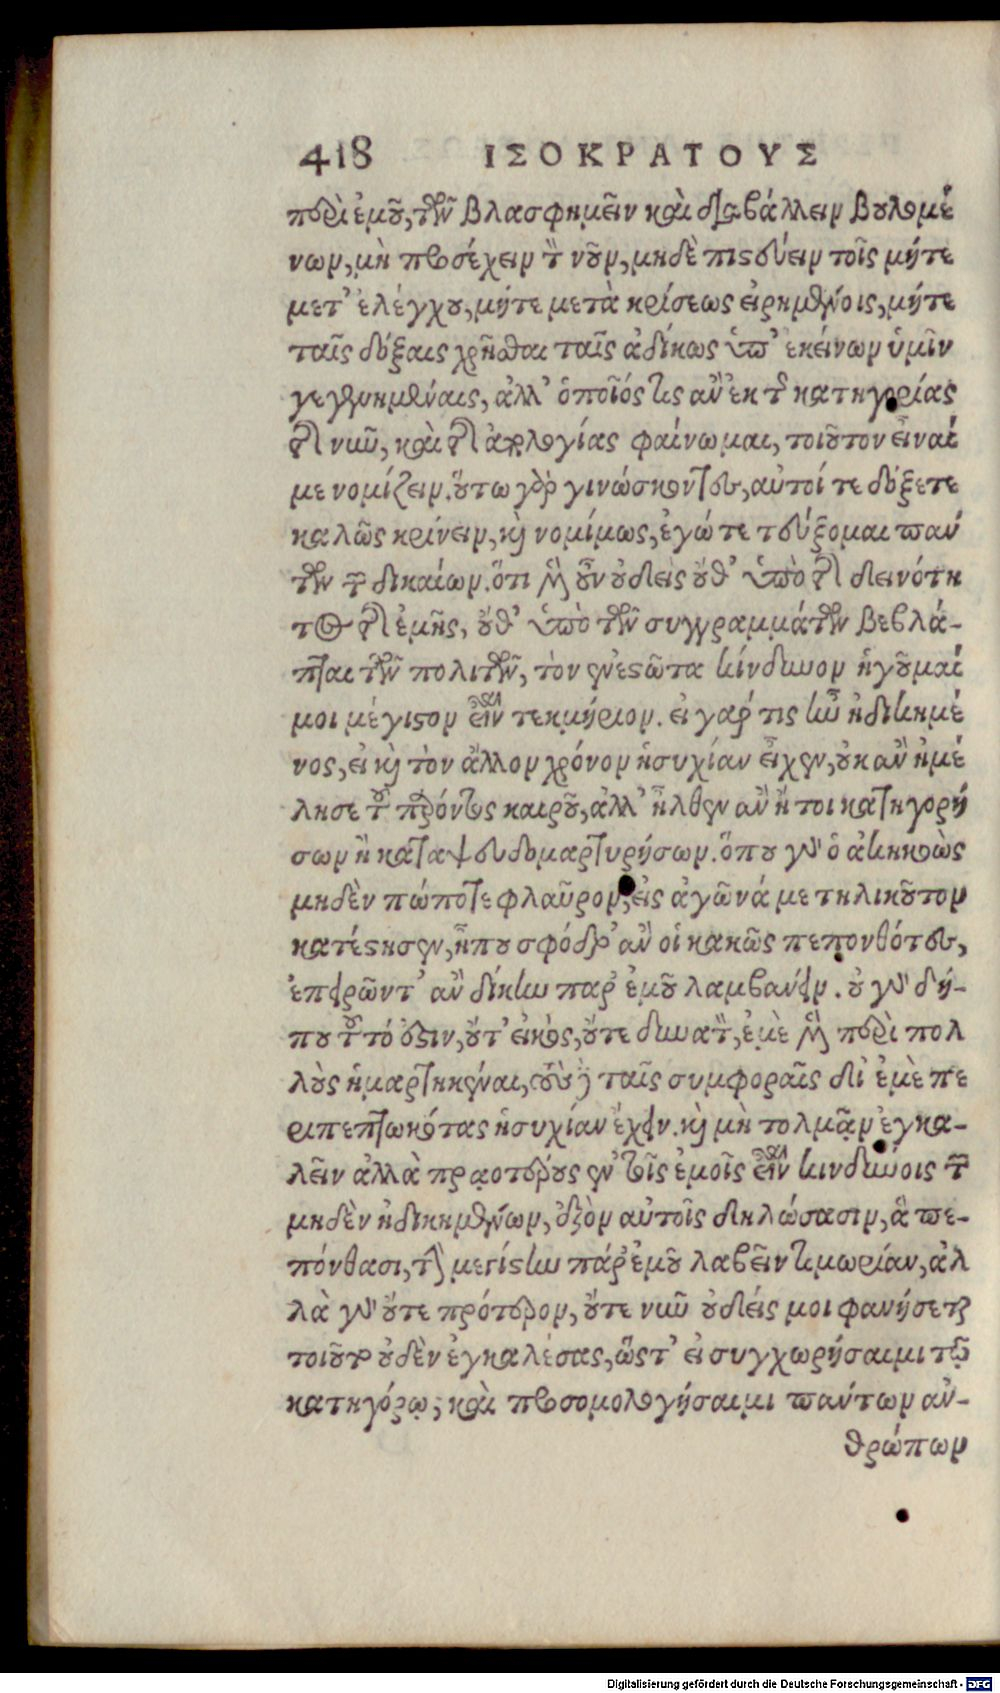 418 ΙΣΟΚΡΑΤΟΥΣ
περὶ ἐμοῦ, τῶν βλασφημεῖν καὶ διαβάλλειν βουλομέ
νων, μὴ προσέχειν τὸν νοῦν, μηδὲ πιστεύειν τοῖς μήτε
μετ' ἐλέγχου, μήτε μετὰ κρίσεως εἰρημένοις, μήτε
ταῖς δόξαις χρῆσθαι ταῖς ἀδίκως ὑπ' ἐκείνων ὑμῖν
γεγενημέναις, ἀλλ' ὁποῖός τις ἂν ἐκ τῆς κατηγορίας
τῆς νῦν, καὶ τῆς ἀπολογίας φαίνωμαι, τοιοῦτον εἶναί
με νομίζειν. οὕτω γὰρ γινώσκοντες, αὐτοί τε δόξετε
καλῶς κρίνειν, καὶ νομίμως, ἐγώ τε τεύξομαι πάν
των τῶν δικαίων. ὅτι μὲν οὖν οὐδεὶς οὔθ' ὑπὸ τῆς δεινότη
τος τῆς ἐμῆς, οὔθ' ὑπὸ τῶν συγγραμμάτων βέβλα-
πται τῶν πολιτῶν, τὸν ἐνεστῶτα κίνδυνον ἡγοῦμαί
μοι μέγιστον εἶναι τεκμήριον. εἰ γάρ τις ἦν ἠδικημέ
νος, εἰ καὶ τὸν ἄλλον χρόνον ἡσυχίαν εἶχεν, οὐκ ἂν ἠμέ
λησε τοῦ παρόντος καιροῦ, ἀλλ' ἦλθεν ἂν ἤτοι κατηγορή
σων ἢ καταψευδομαρτυρήσων. ὅπου γὰρ ὁ ἀκηκοὼς
μηδὲν πώποτε φλαῦρον, εἰς ἀγῶνά με τηλικοῦτον
κατέστησεν, ἦπου σφόδρ' ἂν οἱ κακῶς πεπονθότες,
ἐπειρῶντ' ἂν δίκην παρ' ἐμοῦ λαμβάνειν. οὐ γὰρ δή-
που τοῦτό ἐστιν, οὔτ' εἰκὸς, οὔτε δυνατὸν, ἐμὲ μὲν περὶ πολ
λοὺς ἡμαρτηκέναι, τοὺς δὲ ταῖς συμφοραῖς δι' ἐμὲ πε
ριπεπτωκότας ἡσυχίαν ἔχειν. καὶ μὴ τολμᾷν ἐγκα-
λεῖν ἀλλὰ πραοτέρους ἐν τοῖς ἐμοῖς εἶναι κινδύνοις τῶν
μηδὲν ἠδικημένων, ἐξὸν αὐτοῖς δηλώσασιν, ἃ πε-
πόνθασι, τὴν μεγίστην παρ' ἐμοῦ λαβεῖν τιμωρίαν, ἀλ
λὰ γὰρ οὔτε πρότερον, οὔτε νῦν οὐδείς μοι φανήσεται
τοιοῦτον οὐδὲν ἐγκαλέσας, ὥστ' εἰ συγχωρήσαιμι τῷ
κατηγόρῳ, καὶ προσομολογήσαιμι πάντων ἀν-
θρώπων
Digitalisierung gefördert durch die Deutsche Forschungsgemeinschaft - DFG